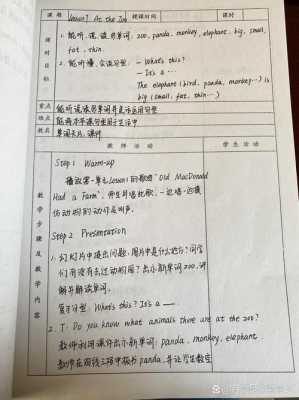 课题 Lesson1 At the Zoo 授课时间 课时
课时目标
1. 能听、说、读、写单词: zoo, panda, monkey, elephant, big, small,
fat, thin.
2. 能听懂、会说句型: - What's this?
- It's a …
The elephant (bird, panda, monkey…) is
big (small, fat, thin…)
重点 能听说读写单词并灵活运用句型
难点 能将本课操句型用于生活中
教具 单词卡片、课件
教师活动 学生活动
教学步骤及教学内容
Step 1 Warm-up
播放第一单元Lesson1的歌曲"Old MacDonald
Had a Farm". 师生共唱此歌, 一边唱一边模
仿动物的动作及叫声.
Step 2 Presentation
1. 幻灯片中提出问题, 图片中是什么地方? 同学
们有没有去过动物园? 出示新单词 zoo, 讲
解并解读单词.
复习句型: What's this? It's a ___.
2. T: Do you know what animals there are at the zoo?
教师利用课件出示新单词: panda, monkey, elephant.
教师在四线三格中板书panda, 并让学生